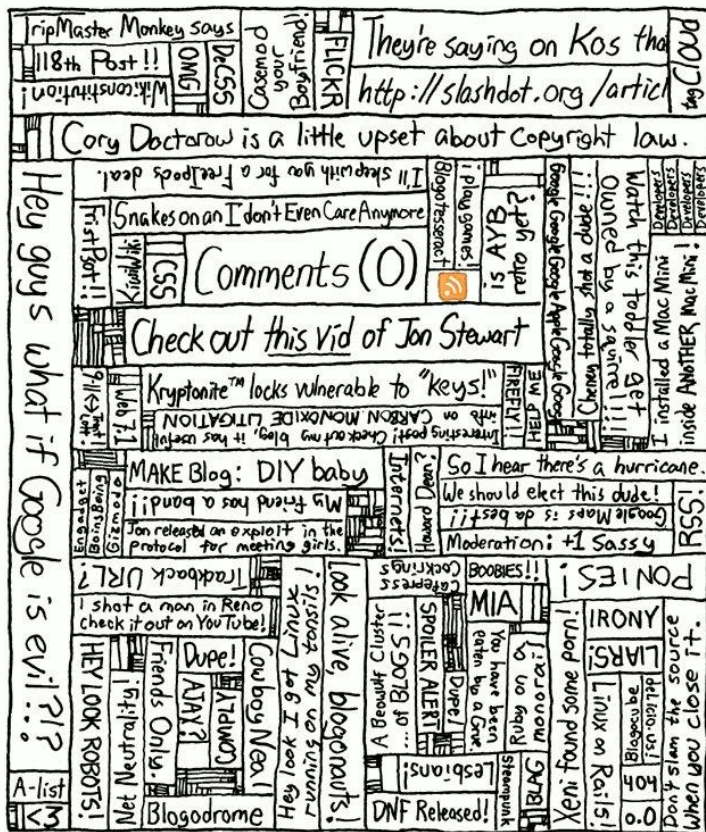 TripMaster Monkey says
118th Post!!
Wikiconstitution!
OMG
DeCSS
Casemod
your
Boyfriend!!
FLICKR
They're saying on Kos tha
http://slashdot.org/articl
tag Cloud
Cory Doctorow is a little upset about copyright law.
Hey guys what if Google is evil?!?
A-list
<3
I'll sleep with you for a FreeIpods deal.
Frist Psot!!
Snakes on an I don't Even Care Anymore
KiwiWiki
CSS
Comments (0)
Blogotesseract
i play games!
is AYB
retro yet?
Google Google Google Apple Google Goog
Cheney totally shot a dude!!!
Watch this toddler get
Owned by a squirrel!!!
Developers
Developers
Developers
Developers
I installed a Mac Mini
inside ANOTHER Mac Mini!
Check out this vid of Jon Stewart
9-11 <-> Trent
Lott!
Web 7.1
Kryptonite™ locks vulnerable to "keys!"
Interesting post! Check out my blog, it has useful
info on CARBON MONOXIDE LITIGATION
FIREFLY!!
HELP ME
Engadget
BoingBoing
Gizmodo
MAKE Blog: DIY baby
My friend has a band!!
Jon released an exploit in the
protocol for meeting girls.
Internets!
Howard Dean?
So I hear there's a hurricane.
We should elect this dude!
Google Maps is da best!!
Moderation: +1 Sassy
RSS!
Trackback URL?
I shot a man in Reno
check it out on YouTube!
HEY LOOK ROBOTS!
Net Neutrality!
Friends Only.
Dupe!
AJAX?
COMPLY
Cowboy Neal
Blogodrome
Hey look I got Linux
running on my tonsils!
Look alive, blogonauts!
Cafepress
Cockrings
BOOBIES!!
MIA
A Beowulf Cluster
... of BLOGS!!
SPOILER ALERT!
Dupe!
You have been
eaten by a Grue.
Ruby on a
monorail
Lesbians!
DNF Released!
Steampunk
BLAG
PONIES!
Xeni found some porn!
IRONY
LIARS!
Linux on Rails!
Blogocube
del.icio.us!
404
0.0
Don't slam the source
when you close it.